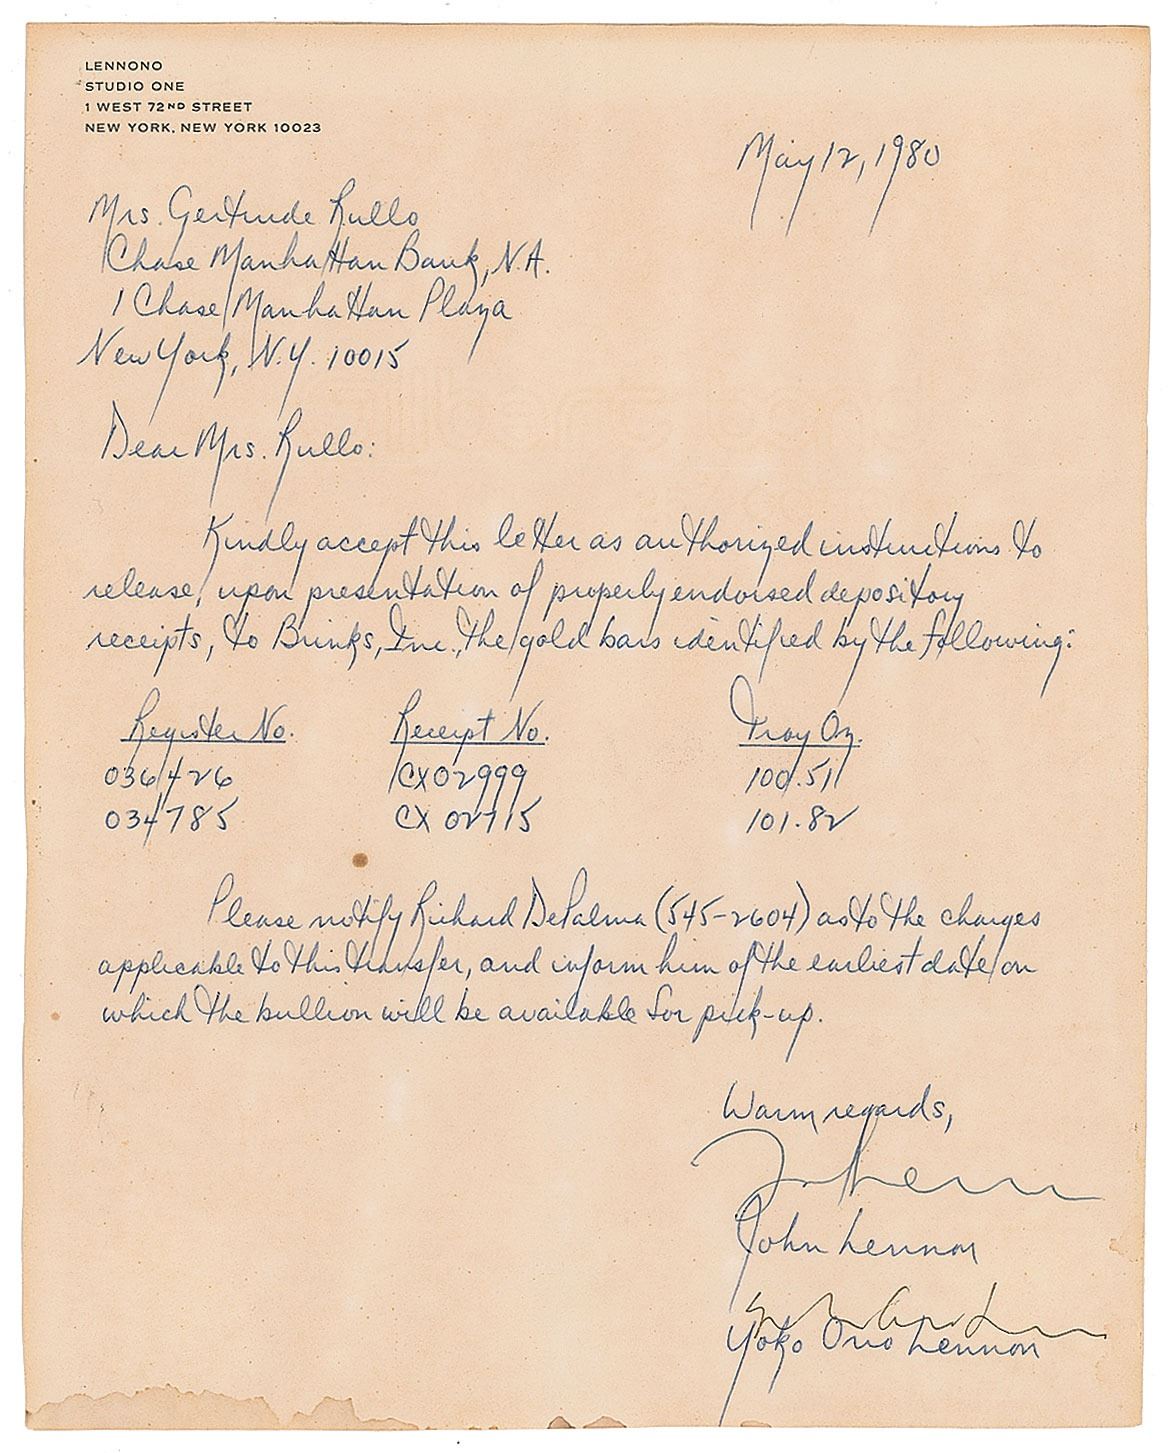 LENNONO
STUDIO ONE
1 WEST 72ND STREET
NEW YORK, NEW YORK 10023
May 12, 1980
Mrs. Gertrude Rullo
Chase Manhattan Bank, N.A.
1 Chase Manhattan Plaza
New York, N.Y. 10015
Dear Mrs. Rullo:
Kindly accept this letter as authorized instructions to
release, upon presentation of properly endorsed depository
receipts, to Brinks, Inc., the gold bars identified by the following:
Register No. Receipt No. Troy Oz.
036426 CX02999 100.51
034785 CX 02715 101.82
Please notify Richard DePalma (545-2604) as to the charges
applicable to this transfer, and inform him of the earliest date on
which the bullion will be available for pick-up.
Warm regards,
John Lennon
Yoko Ono Lennon